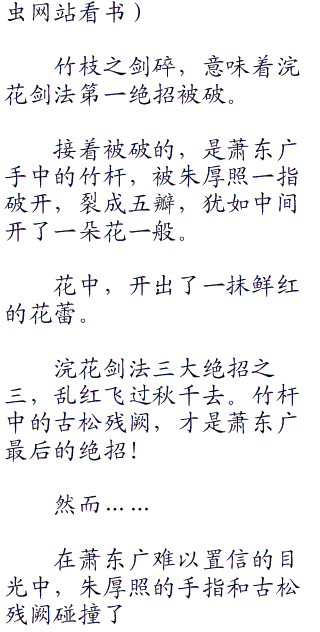 虫网站看书）
竹枝之剑碎，意味着浣
花剑法第一绝招被破。
接着被破的，是萧东广
手中的竹杆，被朱厚照一指
破开，裂成五瓣，犹如中间
开了一朵花一般。
花中，开出了一抹鲜红
的花蕾。
浣花剑法三大绝招之
三，乱红飞过秋千去。竹杆
中的古松残阙，才是萧东广
最后的绝招！
然而……
在萧东广难以置信的目
光中，朱厚照的手指和古松
残阙碰撞了